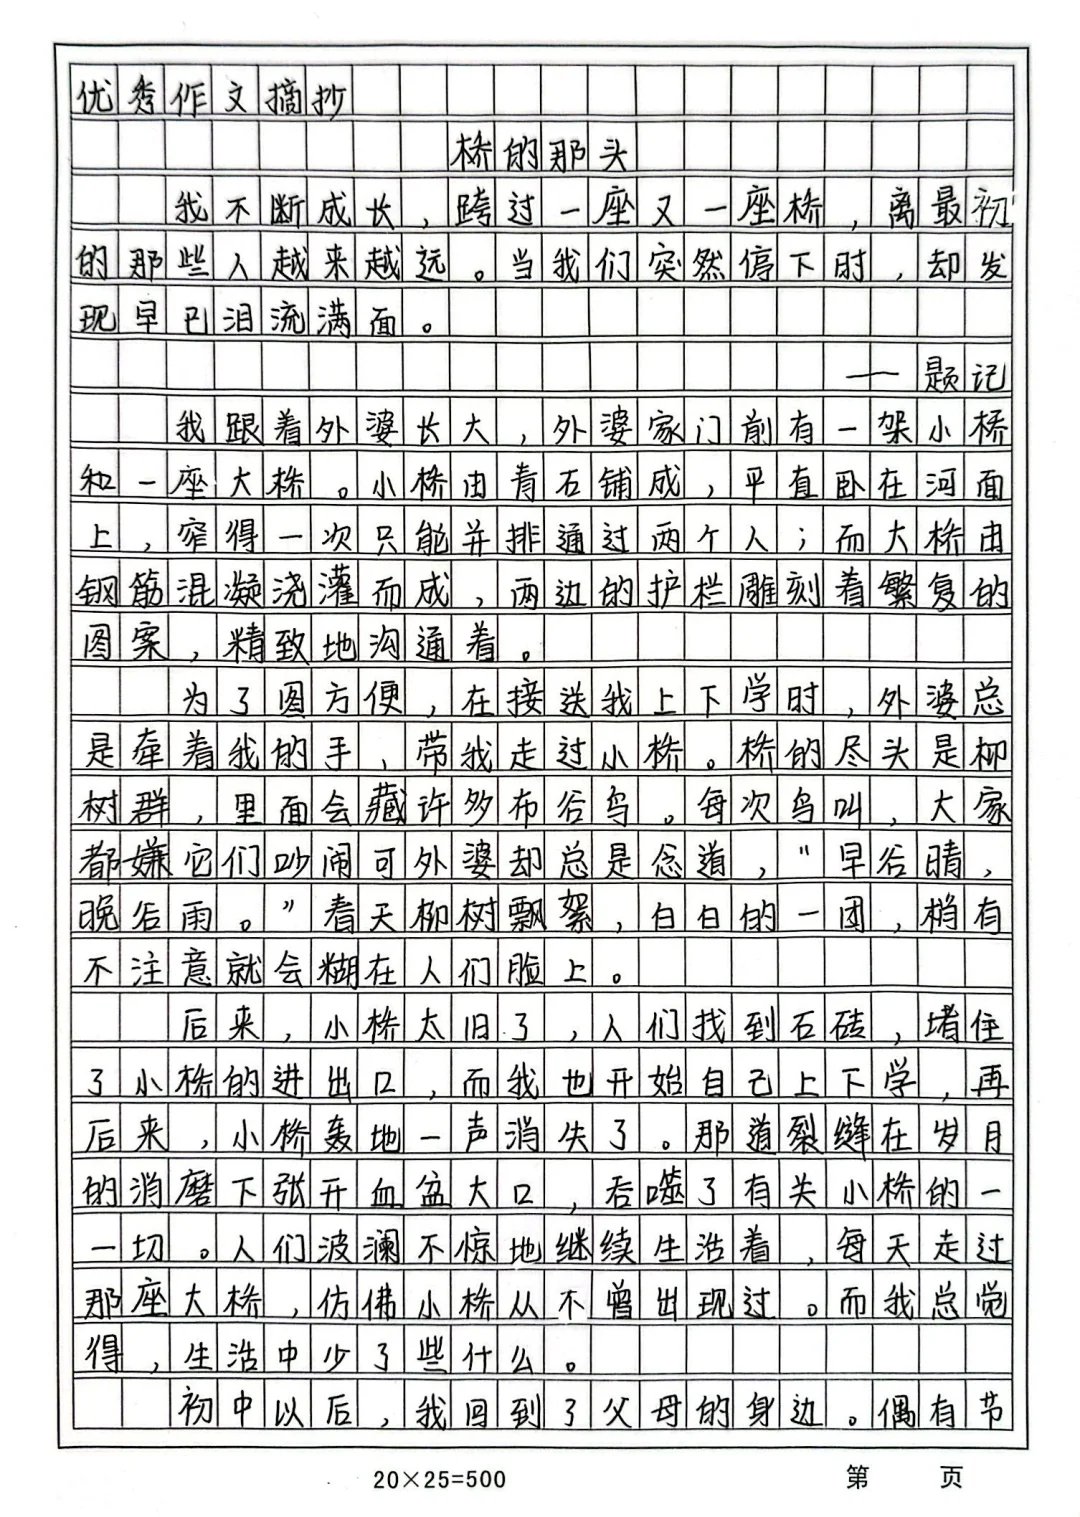 优秀作文摘抄
桥的那头
我不断成长，跨过一座又一座桥，离最初
的那些人越来越远。当我们突然停下时，却发
现早已泪流满面。
——题记
我跟着外婆长大，外婆家门前有一架小桥
和一座大桥。小桥由青石铺成，平直卧在河面
上，窄得一次只能并排通过两个人；而大桥由
钢筋混凝浇灌而成，两边的护栏雕刻着繁复的
图案，精致地沟通着。
为了图方便，在接送我上下学时，外婆总
是牵着我的手，带我走过小桥。桥的尽头是柳
树群，里面会藏许多布谷鸟。每次鸟叫，大家
都嫌它们吵闹可外婆却总是念道，“早谷晴，
晚谷雨。”春天柳树飘絮，白白的一团，稍有
不注意就会糊在人们脸上。
后来，小桥太旧了，人们找到石砖，堵住
了小桥的进出口，而我也开始自己上下学，再
后来，小桥轰地一声消失了。那道裂缝在岁月
的消磨下张开血盆大口，吞噬了有关小桥的一
一切。人们波澜不惊地继续生活着，每天走过
那座大桥，仿佛小桥从不曾出现过。而我总觉
得，生活中少了些什么。
初中以后，我回到了父母的身边。偶有节
20×25=500
第 页